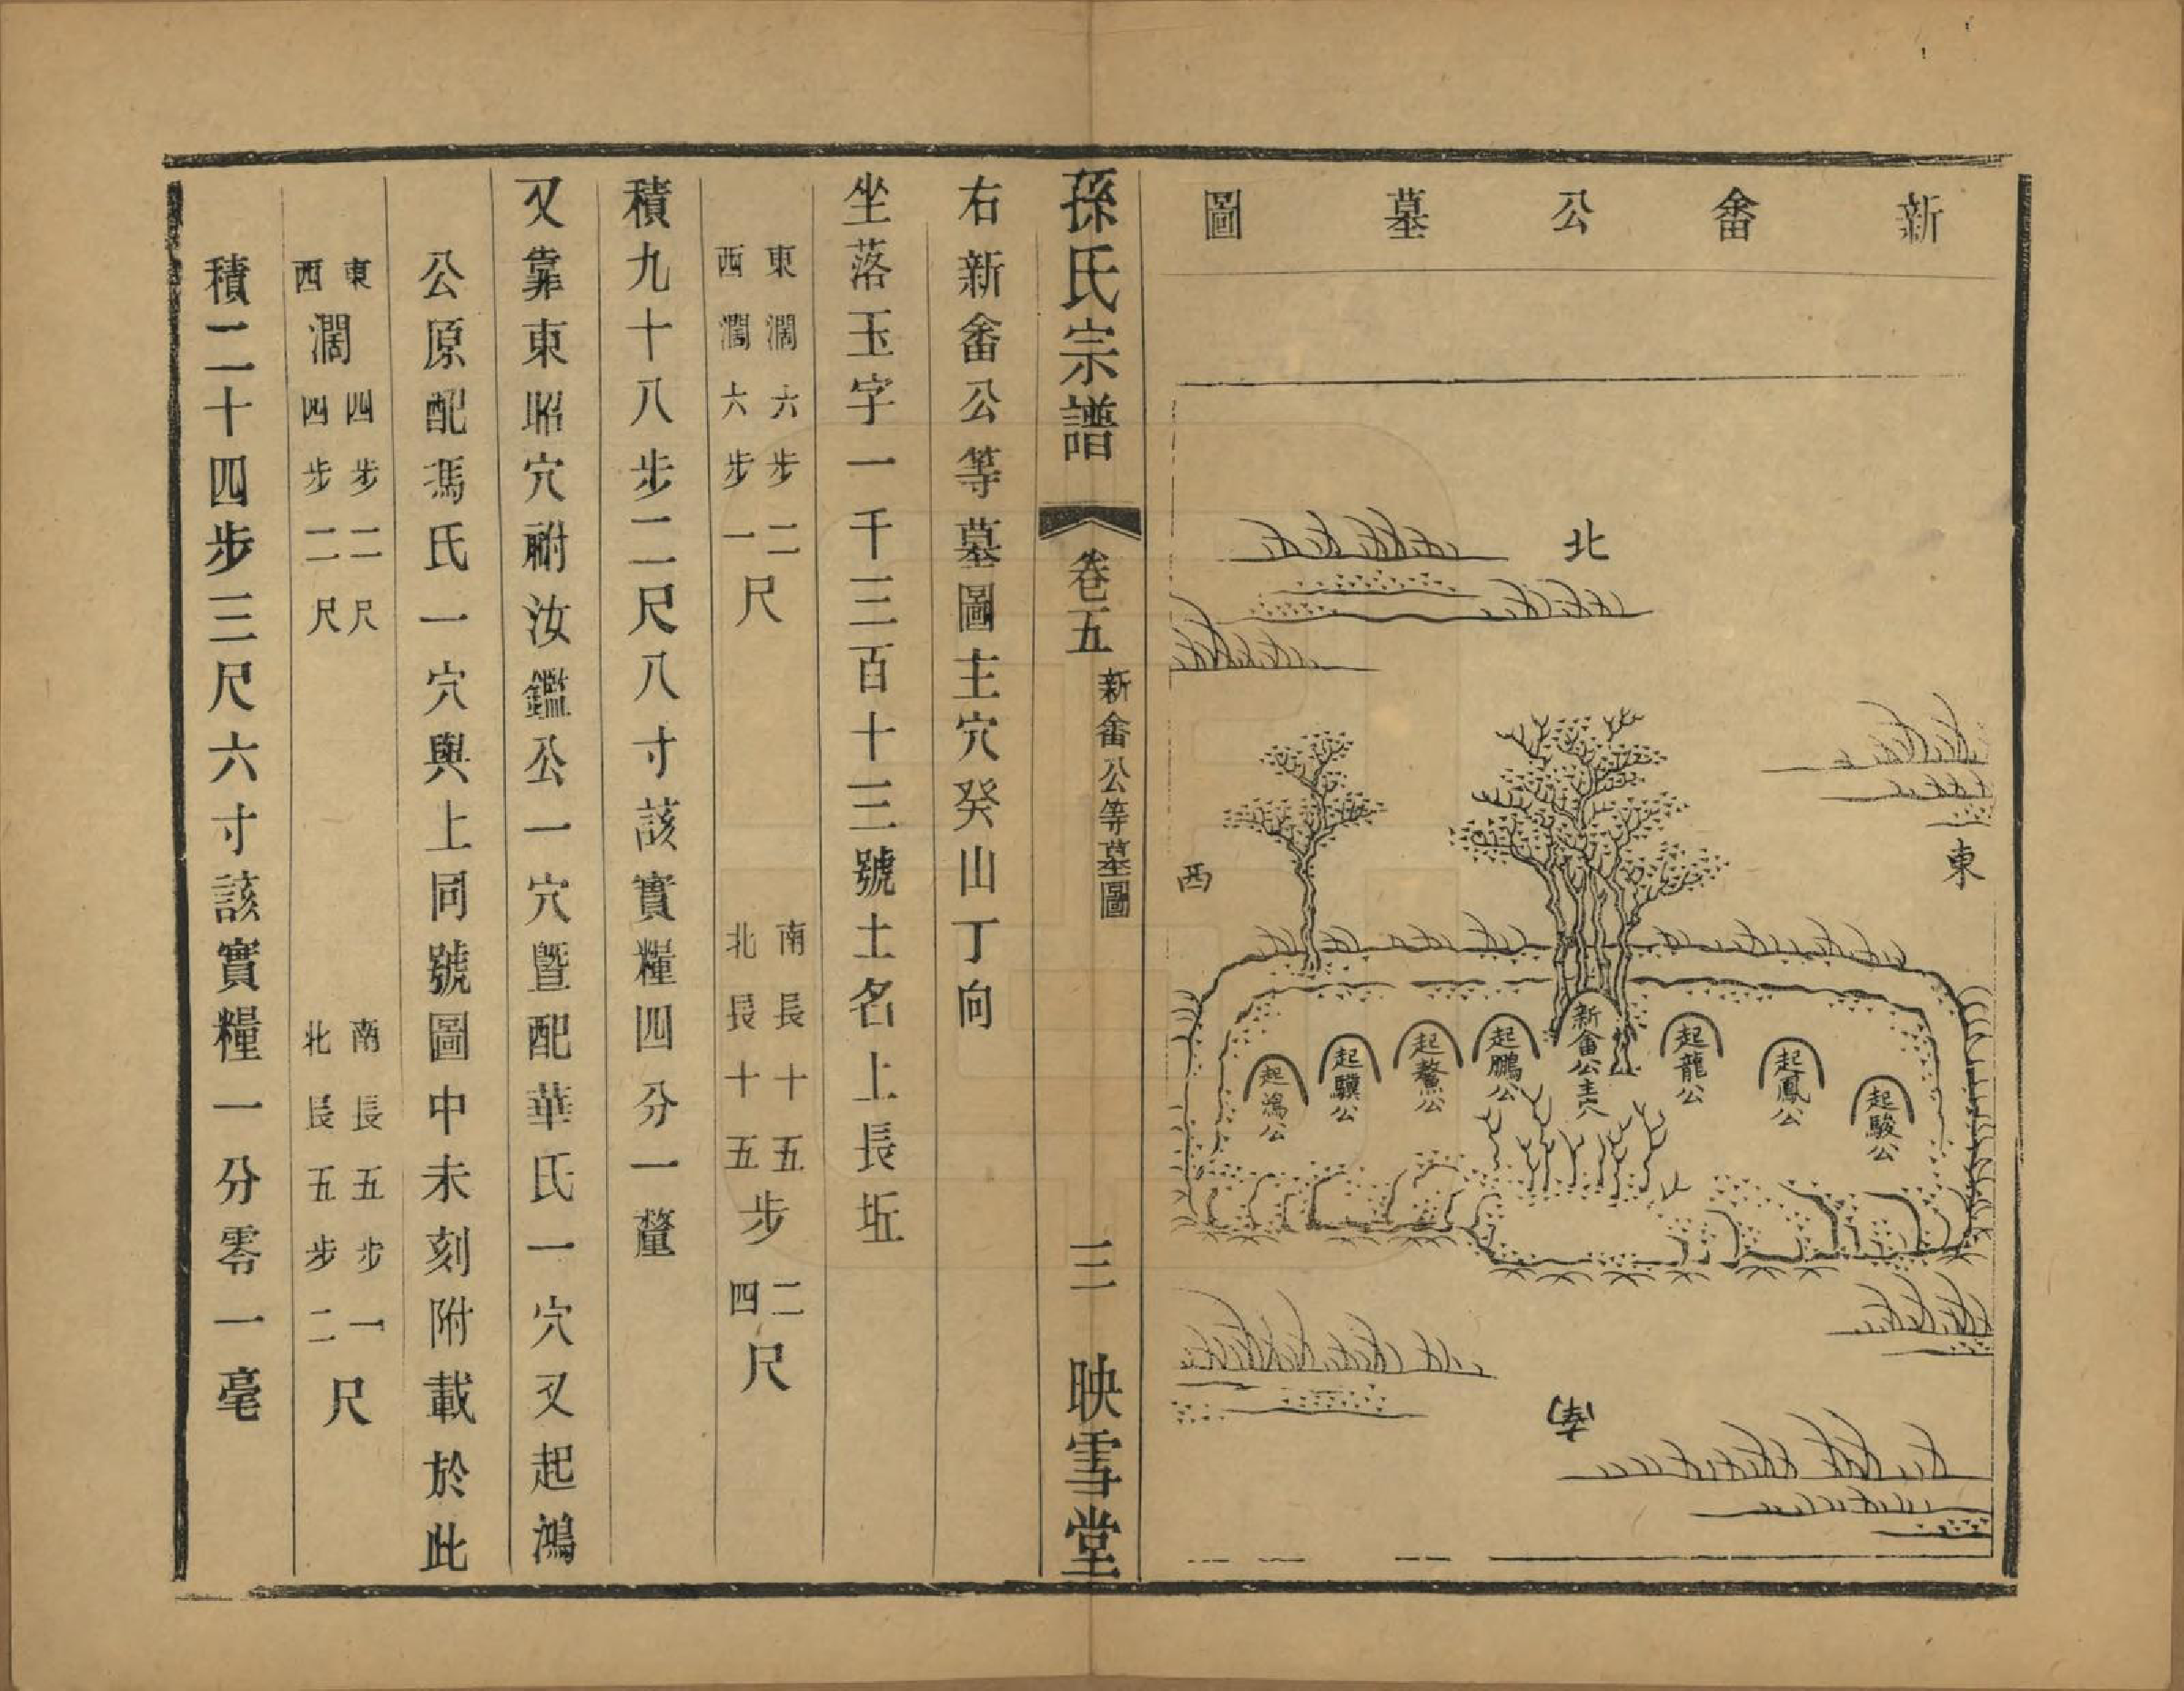 新畬公墓圖
北
東
西
南
新畬公主穴
起龍公
起鳳公
起駿公
起鵬公
起鰲公
起驥公
起鴻公
孫氏宗譜
卷五
新畬公等墓圖
三
映雪堂
右新畬公等墓圖主穴癸山丁向
坐落玉字一千三百十三號土名上長坵
東濶六步二尺 南長十五步二尺
西濶六步一尺 北長十五步四尺
積九十八步二尺八寸該實糧四分一釐
又靠東昭穴祔汝鑑公一穴曁配華氏一穴又起鴻
公原配馮氏一穴與上同號圖中未刻附載於此
東濶四步二尺 南長五步一尺
西濶四步二尺 北長五步二尺
積二十四步三尺六寸該實糧一分零一毫